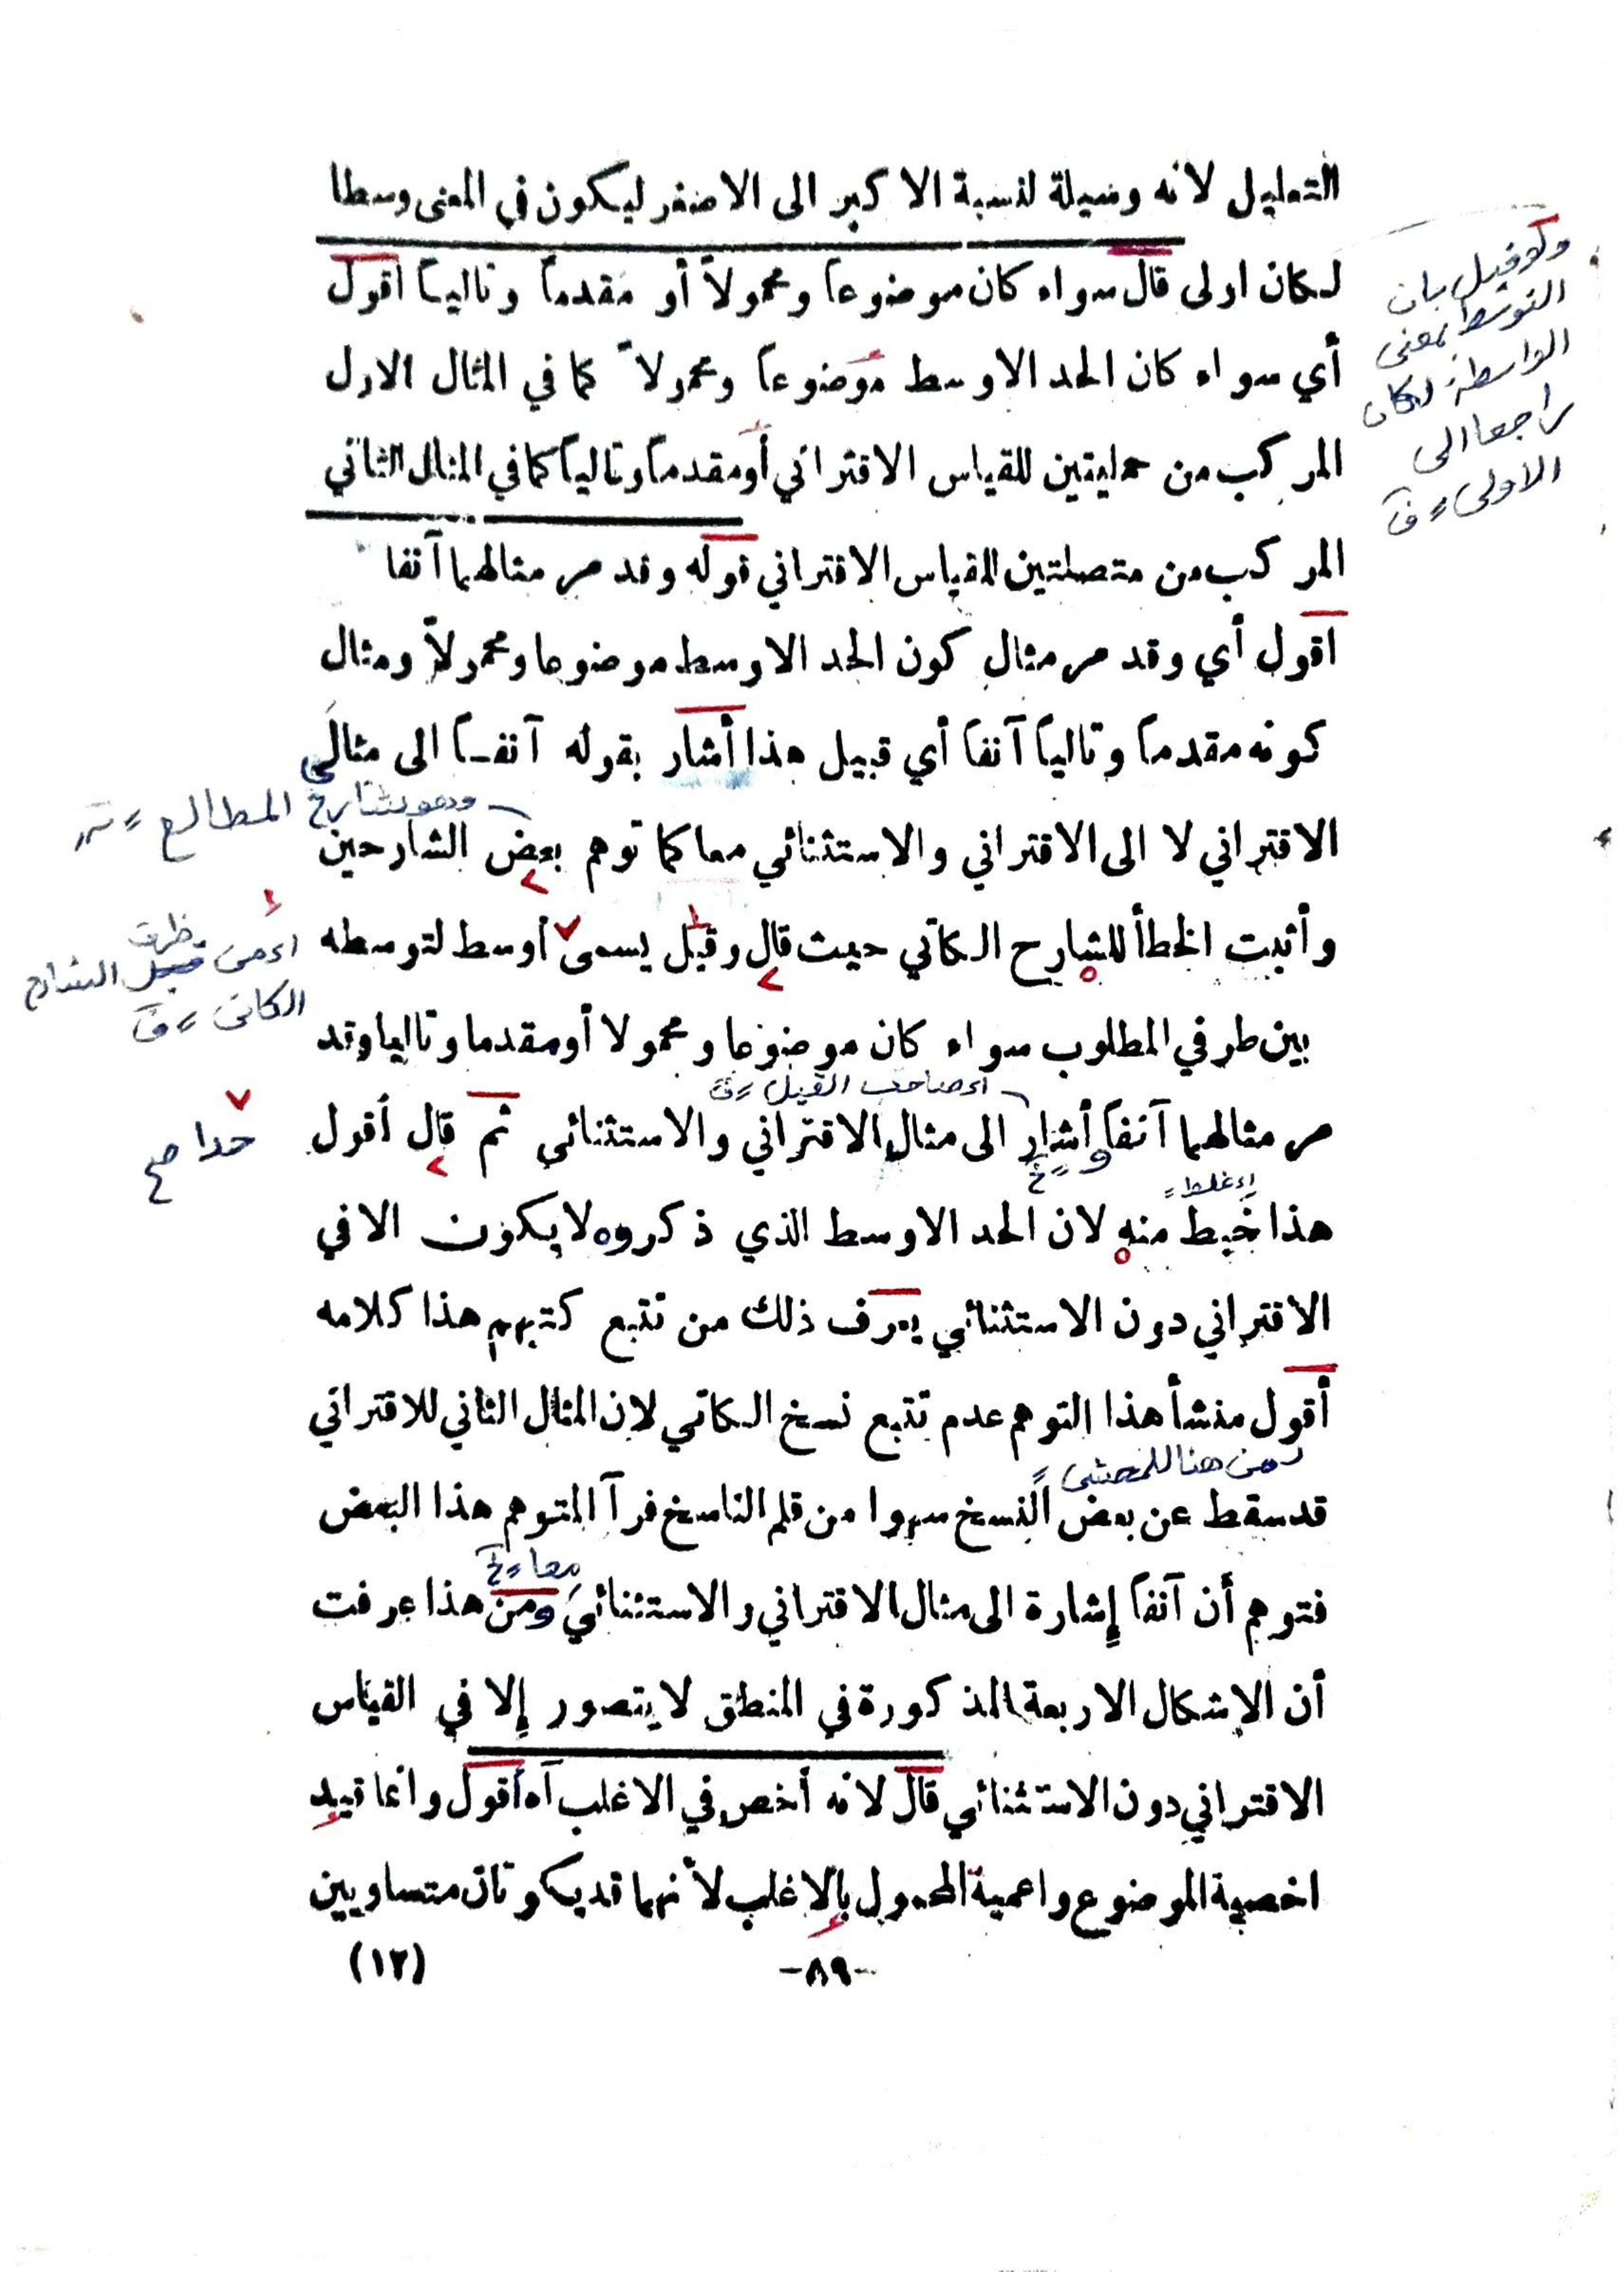 التعليل لانه وسيلة لنسبة الاكبر الى الاصغر ليكون في المعنى وسطا
لكان اولى قال سواء كان موضوعاً ومحمولاً أو مقدماً وتالياً اقول
أي سواء كان الحد الاوسط موضوعاً ومحمولاً كما في المثال الاول
المركب من حمليتين للقياس الاقتراني أومقدماً وتالياً كما في المثال الثاني
المركب من متصلتين للقياس الاقتراني قوله وقد مر مثالهما آنفا
اقول أي وقد مر مثال كون الحد الاوسط موضوعا ومحمولاً ومثال
كونه مقدماً وتالياً آنفاً أي قبيل هذا أشار بقوله آنفاً الى مثالي
وهو شارح المطالع
الاقتراني لا الى الاقتراني والاستثنائي معا كما توهم بعض الشارحين
وأثبت الخطأ للشارح الكاتي حيث قال وقيل يسمى أوسط لتوسطه
بين طرفي المطلوب سواء كان موضوعا ومحمولا أومقدما وتاليا وقد
اى صاحب القيل
مر مثالهما آنفاً أشار الى مثال الاقتراني والاستثنائي ثم قال أقول
هذا خبط منه لان الحد الاوسط الذي ذكروه لا يكون الا في
الاقتراني دون الاستثنائي يعرف ذلك من تتبع كتبهم هذا كلامه
أقول منشأ هذا التوهم عدم تتبع نسخ الكاتي لان المثال الثاني للاقتراني
من هنا للمحشى
قد سقط عن بعض النسخ سهوا من قلم الناسخ فرآ المتوهم هذا البعض
معا
فتوهم أن آنفاً إشارة الى مثال الاقتراني والاستثنائي ومن هذا عرفت
أن الاشكال الاربعة المذكورة في المنطق لا يتصور إلا في القياس
الاقتراني دون الاستثنائي قال لانه أخص في الاغلب آه أقول وانما قيد
اخصية الموضوع واعمية المحمول بالاغلب لأنهما قد يكونان متساويين
-٨٩-
(١٢)
ولو قيل بان
التوسط بمعنى
الواسطة لكان
راجعا الى
الاولى
الشارح
الكاتى
اى غلط